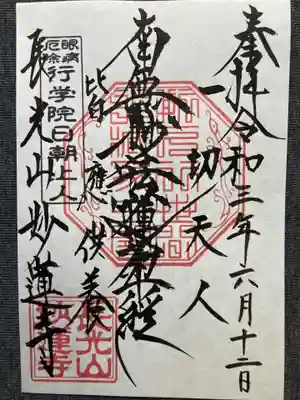 奉拝 令和三年六月十二日
一切天人
南無妙法蓮華経
皆応供養
眼病
厄除
行学院日朝上人
長光山妙蓮寺
長光山
妙蓮寺